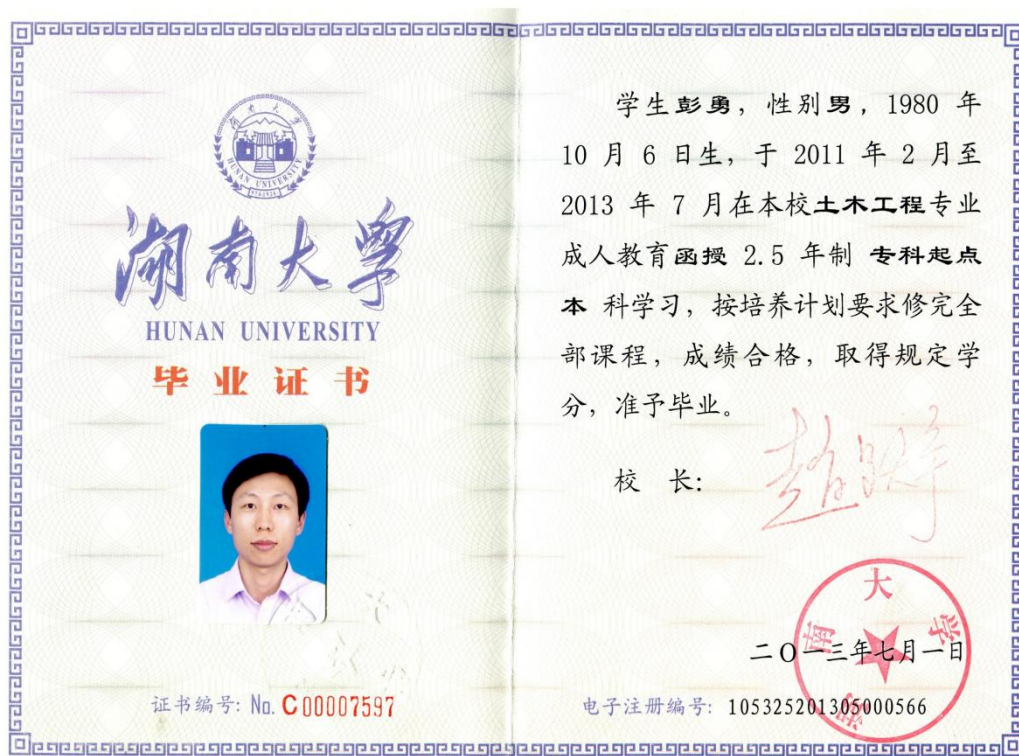 湖南大学
HUNAN UNIVERSITY
湖南大学
HUNAN UNIVERSITY
毕业证书
证书编号: No. C 00007597
学生彭勇，性别男，1980 年
10 月 6 日生，于 2011 年 2 月至
2013 年 7 月在本校土木工程专业
成人教育函授 2.5 年制 专科起点
本 科学习，按培养计划要求修完全
部课程，成绩合格，取得规定学
分，准予毕业。
校 长:
湖南大学
二〇一三年七月一日
电子注册编号: 105325201305000566